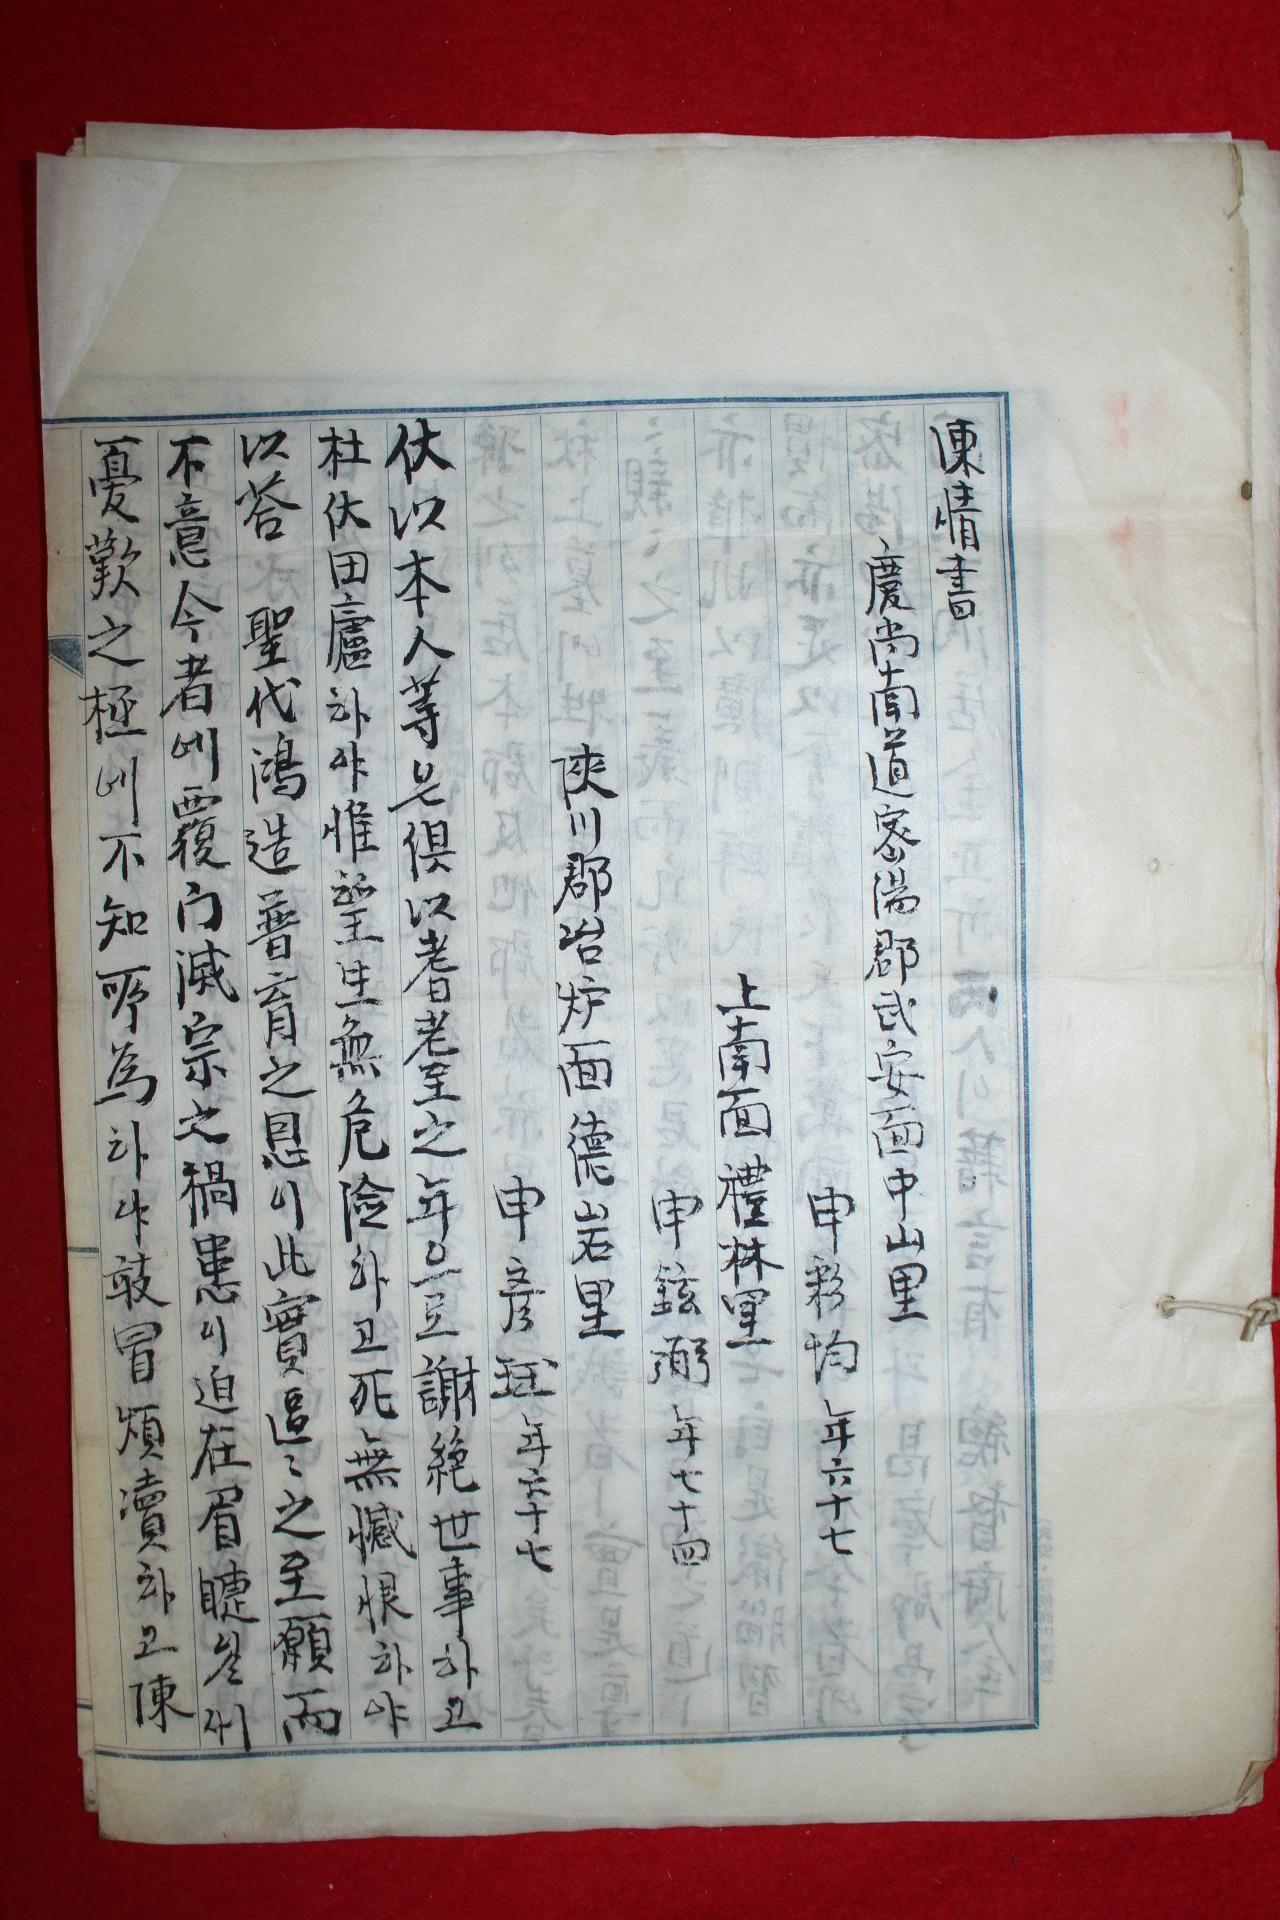 陳情書
慶尚南道密陽郡武安面中山里
申彩均 年六十七
上南面禮林里
申鉉弼 年七十四
陜川郡冶炉面德岩里
申彦珏 年六十七
伏以本人等은俱以耆老至之年으로謝絶世事하고
杜伏田廬하야惟望生無危險하고死無憾恨하야
以答 聖代鴻造普育之恩이此實區〻之至願而
不意今者에覆门滅宗之禍患이迫在眉睫일세
憂歎之極에不知所為하야敢冒煩瀆하고陳